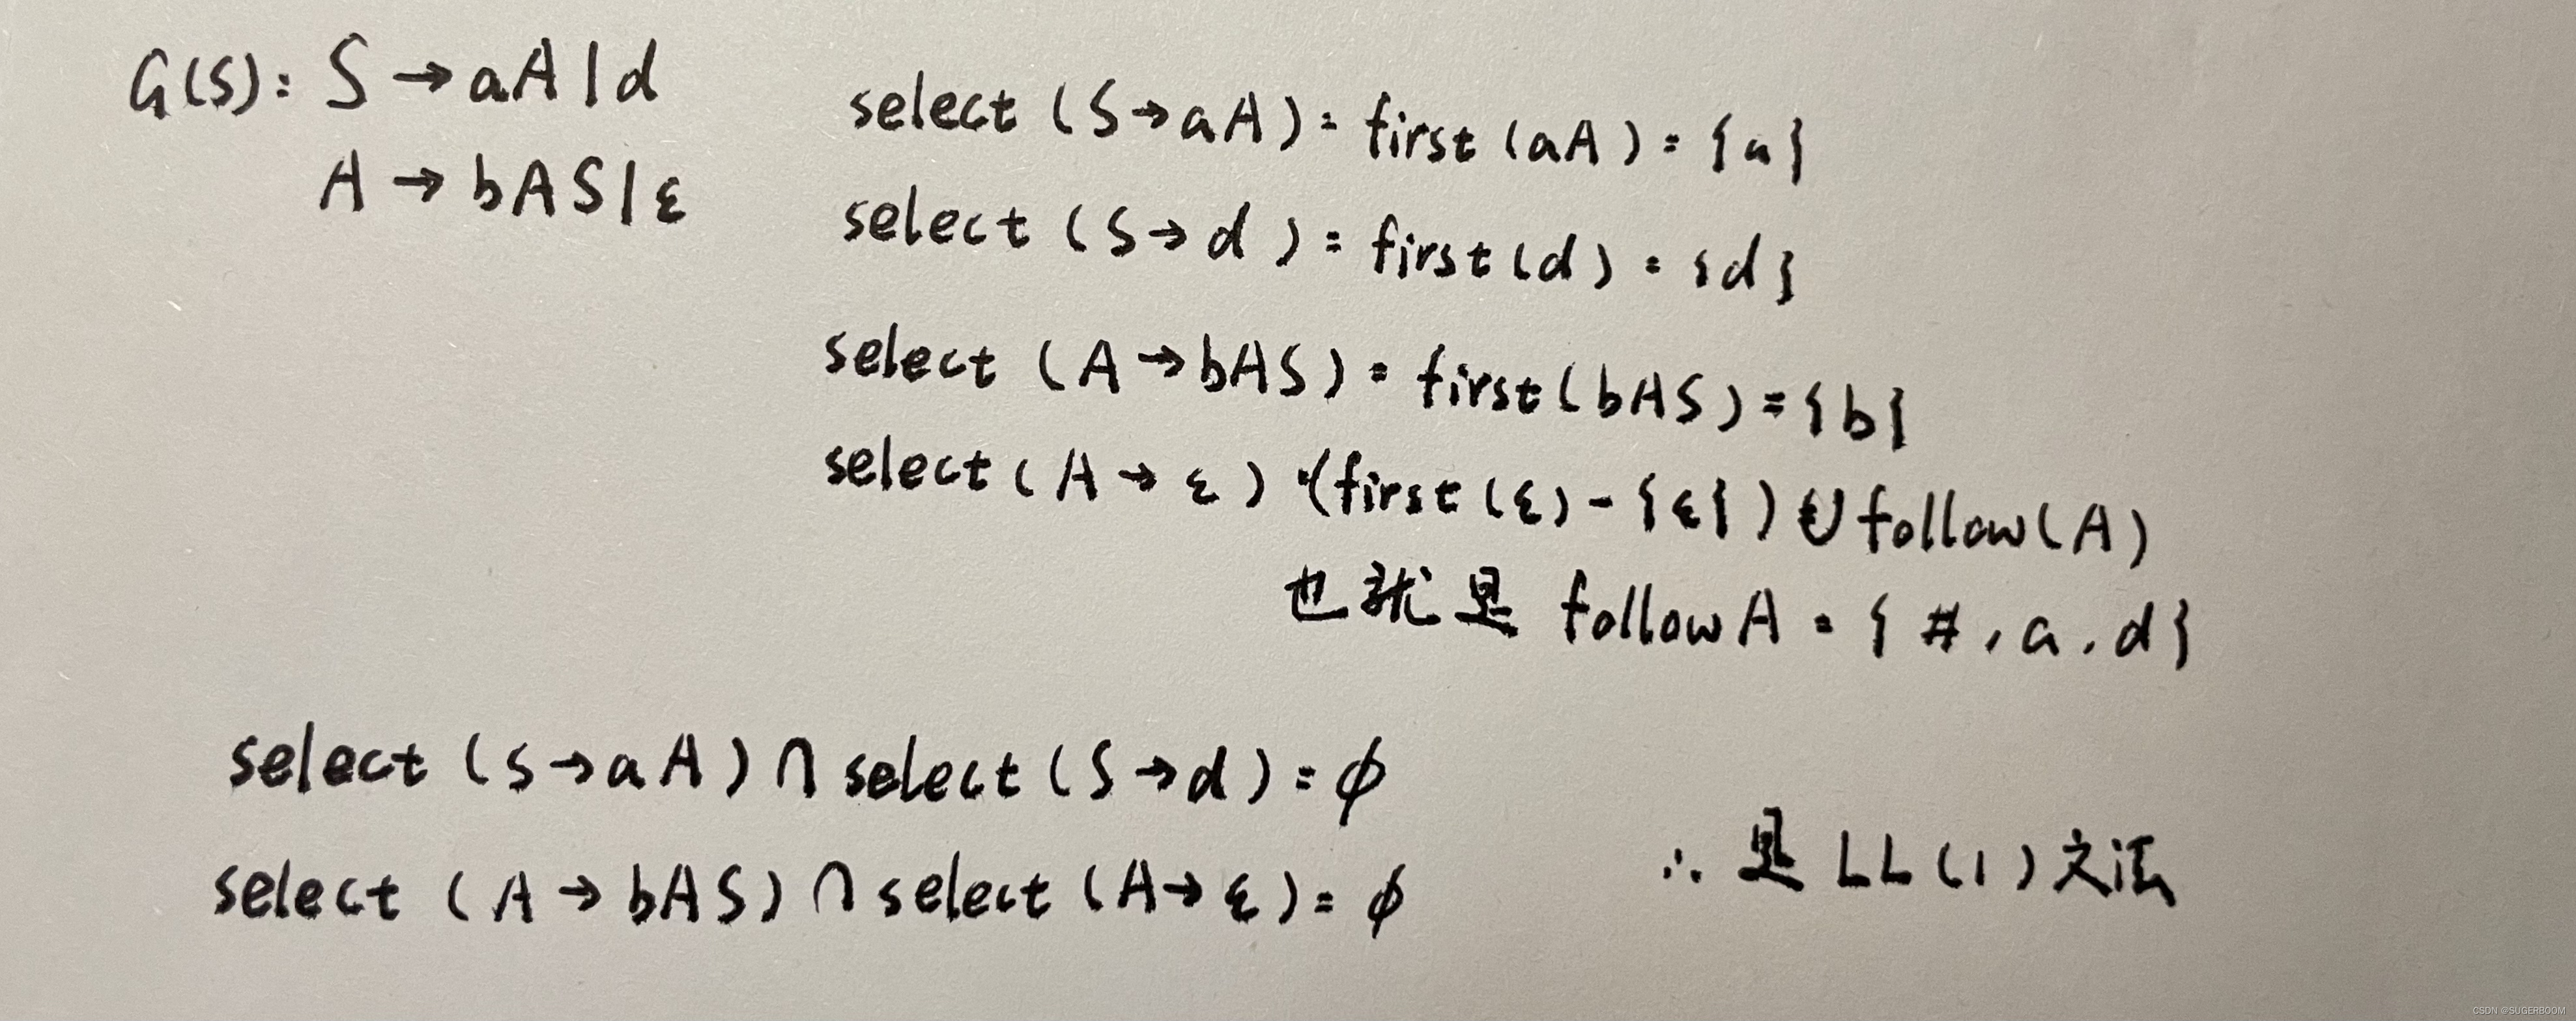 G(S): S → aA | d
A → bAS | ε
select (S→aA) = first (aA) = {a}
select (S→ d ) = first (d) = {d}
select (A →bAS) = first (bAS) = {b}
select ( A → ε ) = (first (ε) - {ε} ) ∪ follow(A)
也就是 follow A = { #, a, d}
select (S→aA) ∩ select (S→d) = ϕ
select (A → bAS) ∩ select (A→ ε) = ϕ
∴ 是 LL(1) 文法
CSDN @SUGERBOOM